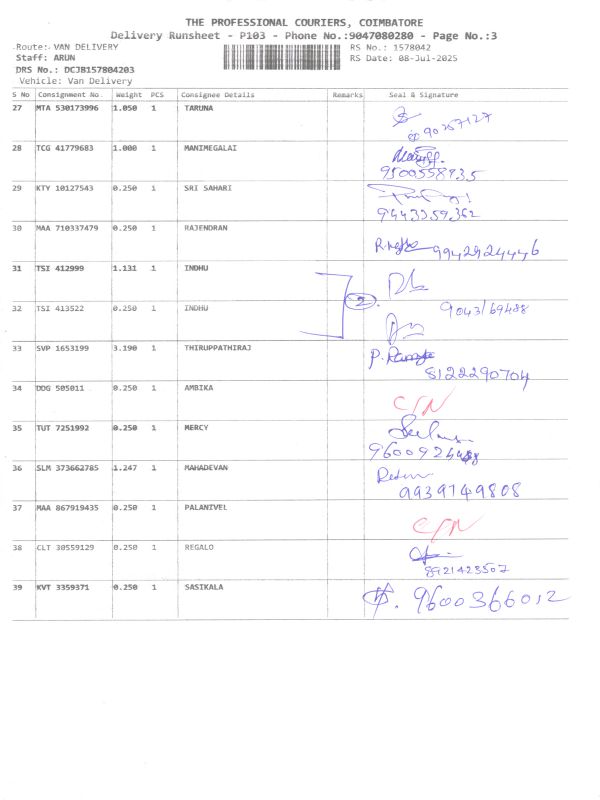 THE PROFESSIONAL COURIERS, COIMBATORE
Delivery Runsheet - P103 - Phone No.:9047080280 - Page No.:3
Route: VAN DELIVERY RS No.: 1578042
Staff: ARUN RS Date: 08-Jul-2025
DRS No.: DCJB157804203
Vehicle: Van Delivery
S No Consignment No. Weight PCS Consignee Details Remarks Seal & Signature
27 MTA 530173996 1.050 1 TARUNA
28 TCG 41779683 1.000 1 MANIMEGALAI
9500558935
29 KTY 10127543 0.250 1 SRI SAHARI
9443359362
30 MAA 710337479 0.250 1 RAJENDRAN
9942924446
31 TSI 412999 1.131 1 INDHU
2
32 TSI 413522 0.250 1 INDHU
9043169488
33 SVP 1653199 3.190 1 THIRUPPATHIRAJ
8122290704
34 DDG 505011 0.250 1 AMBIKA
C/N
35 TUT 7251992 0.250 1 MERCY
36 SLM 373662785 1.247 1 MAHADEVAN
9939749808
37 MAA 867919435 0.250 1 PALANIVEL
C/N
38 CLT 30559129 0.250 1 REGALO
8921423507
39 KVT 3359371 0.250 1 SASIKALA
9600366012